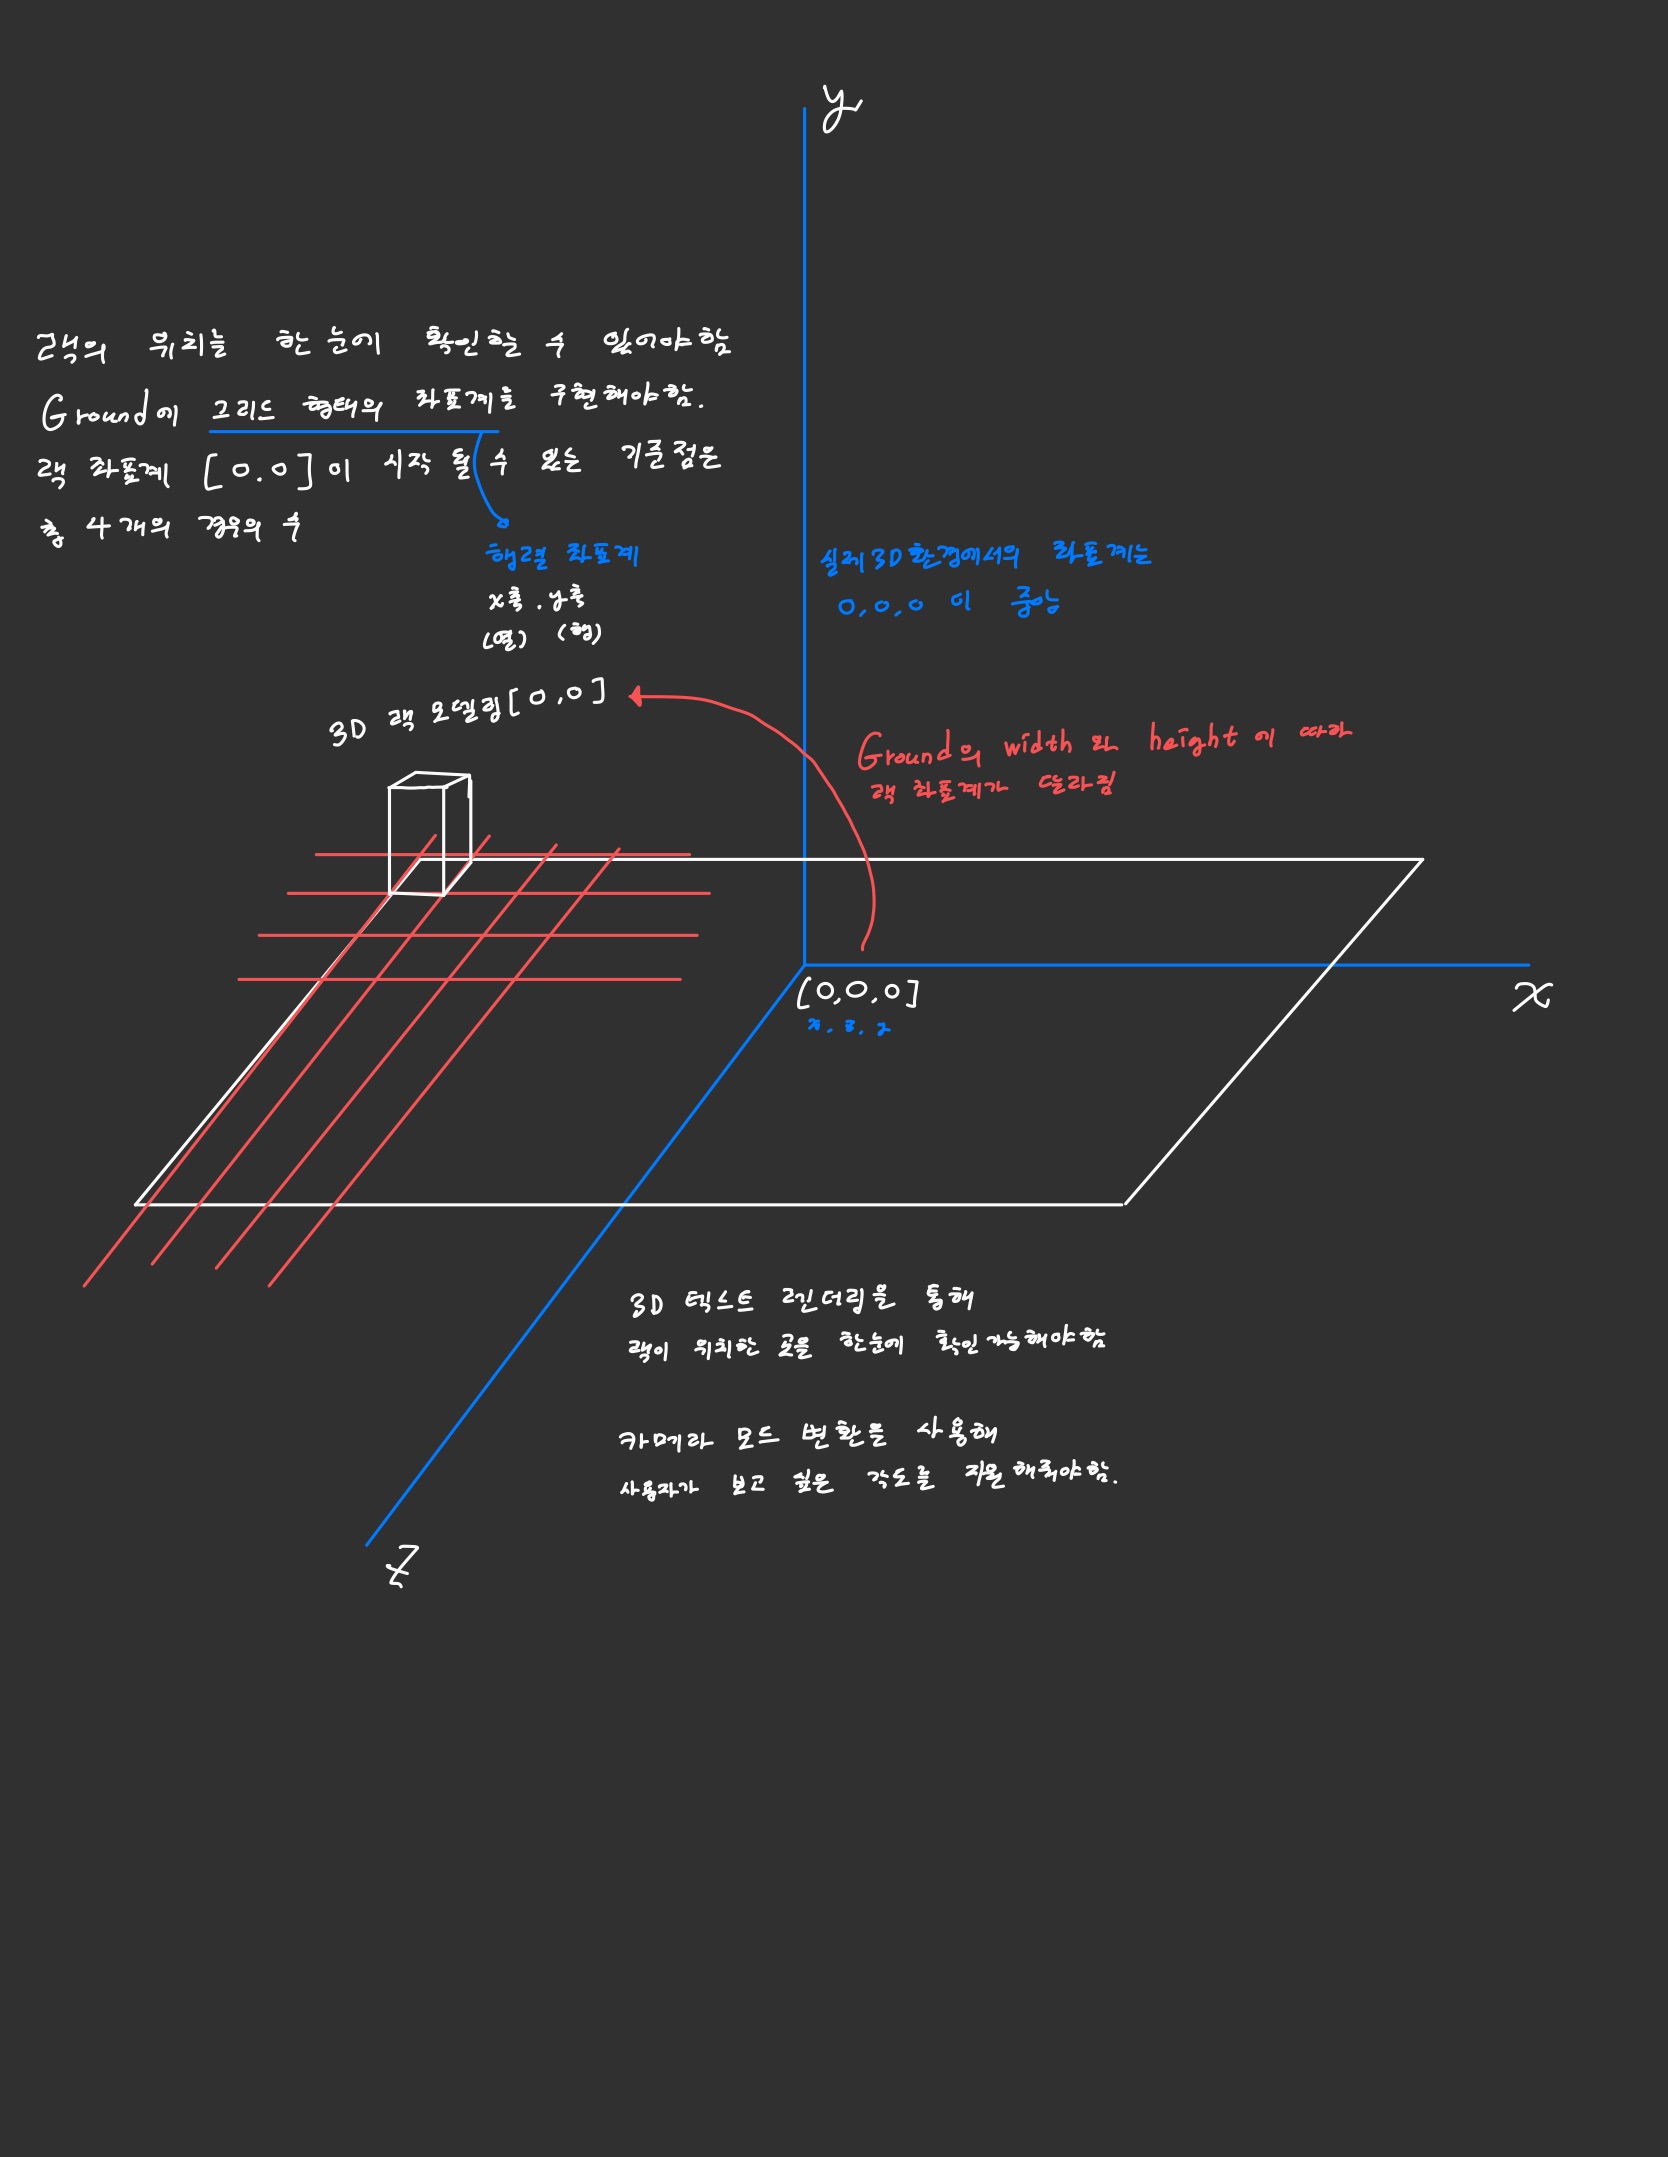 y
랙의 위치를 한 눈에 확인할 수 있어야함
Ground에 그리드 형태의 좌표계를 구현해야함.
랙 좌표계 [0.0]이 시작 될 수 있는 기준점은
총 4개의 경우의 수
행렬 좌표계
x축. y축
(열) (행)
실제 3D환경에서의 좌표계는
0,0,0 이 중앙
3D 랙 모델링[0,0]
Ground의 width 와 height에 따라
랙 좌표계가 달라짐
[0,0,0]
x
3D 텍스트 렌더링을 통해
랙이 위치한 곳을 한눈에 확인 가능해야함
카메라 모드 변환을 사용해
사용자가 보고 싶은 각도를 지원해줘야함.
z